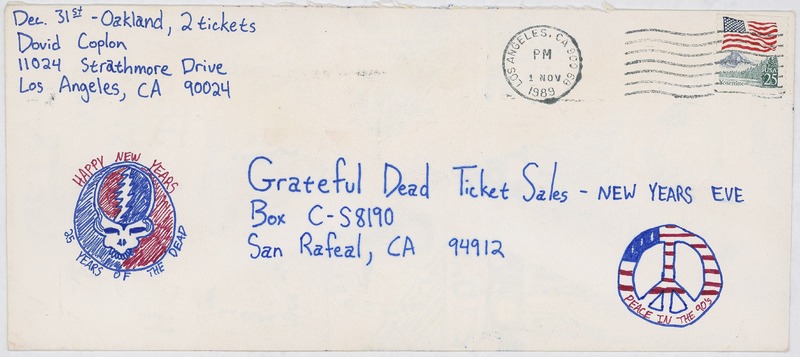 Dec. 31st - Oakland, 2 tickets
David Coplon
11024 Strathmore Drive
Los Angeles, CA 90024
LOS ANGELES, CA
PM
1 NOV
1989
USA
25
HAPPY NEW YEARS
25 YEARS OF THE DEAD
Grateful Dead Ticket Sales - NEW YEARS EVE
Box C-S8190
San Rafeal, CA 94912
PEACE IN THE 90's